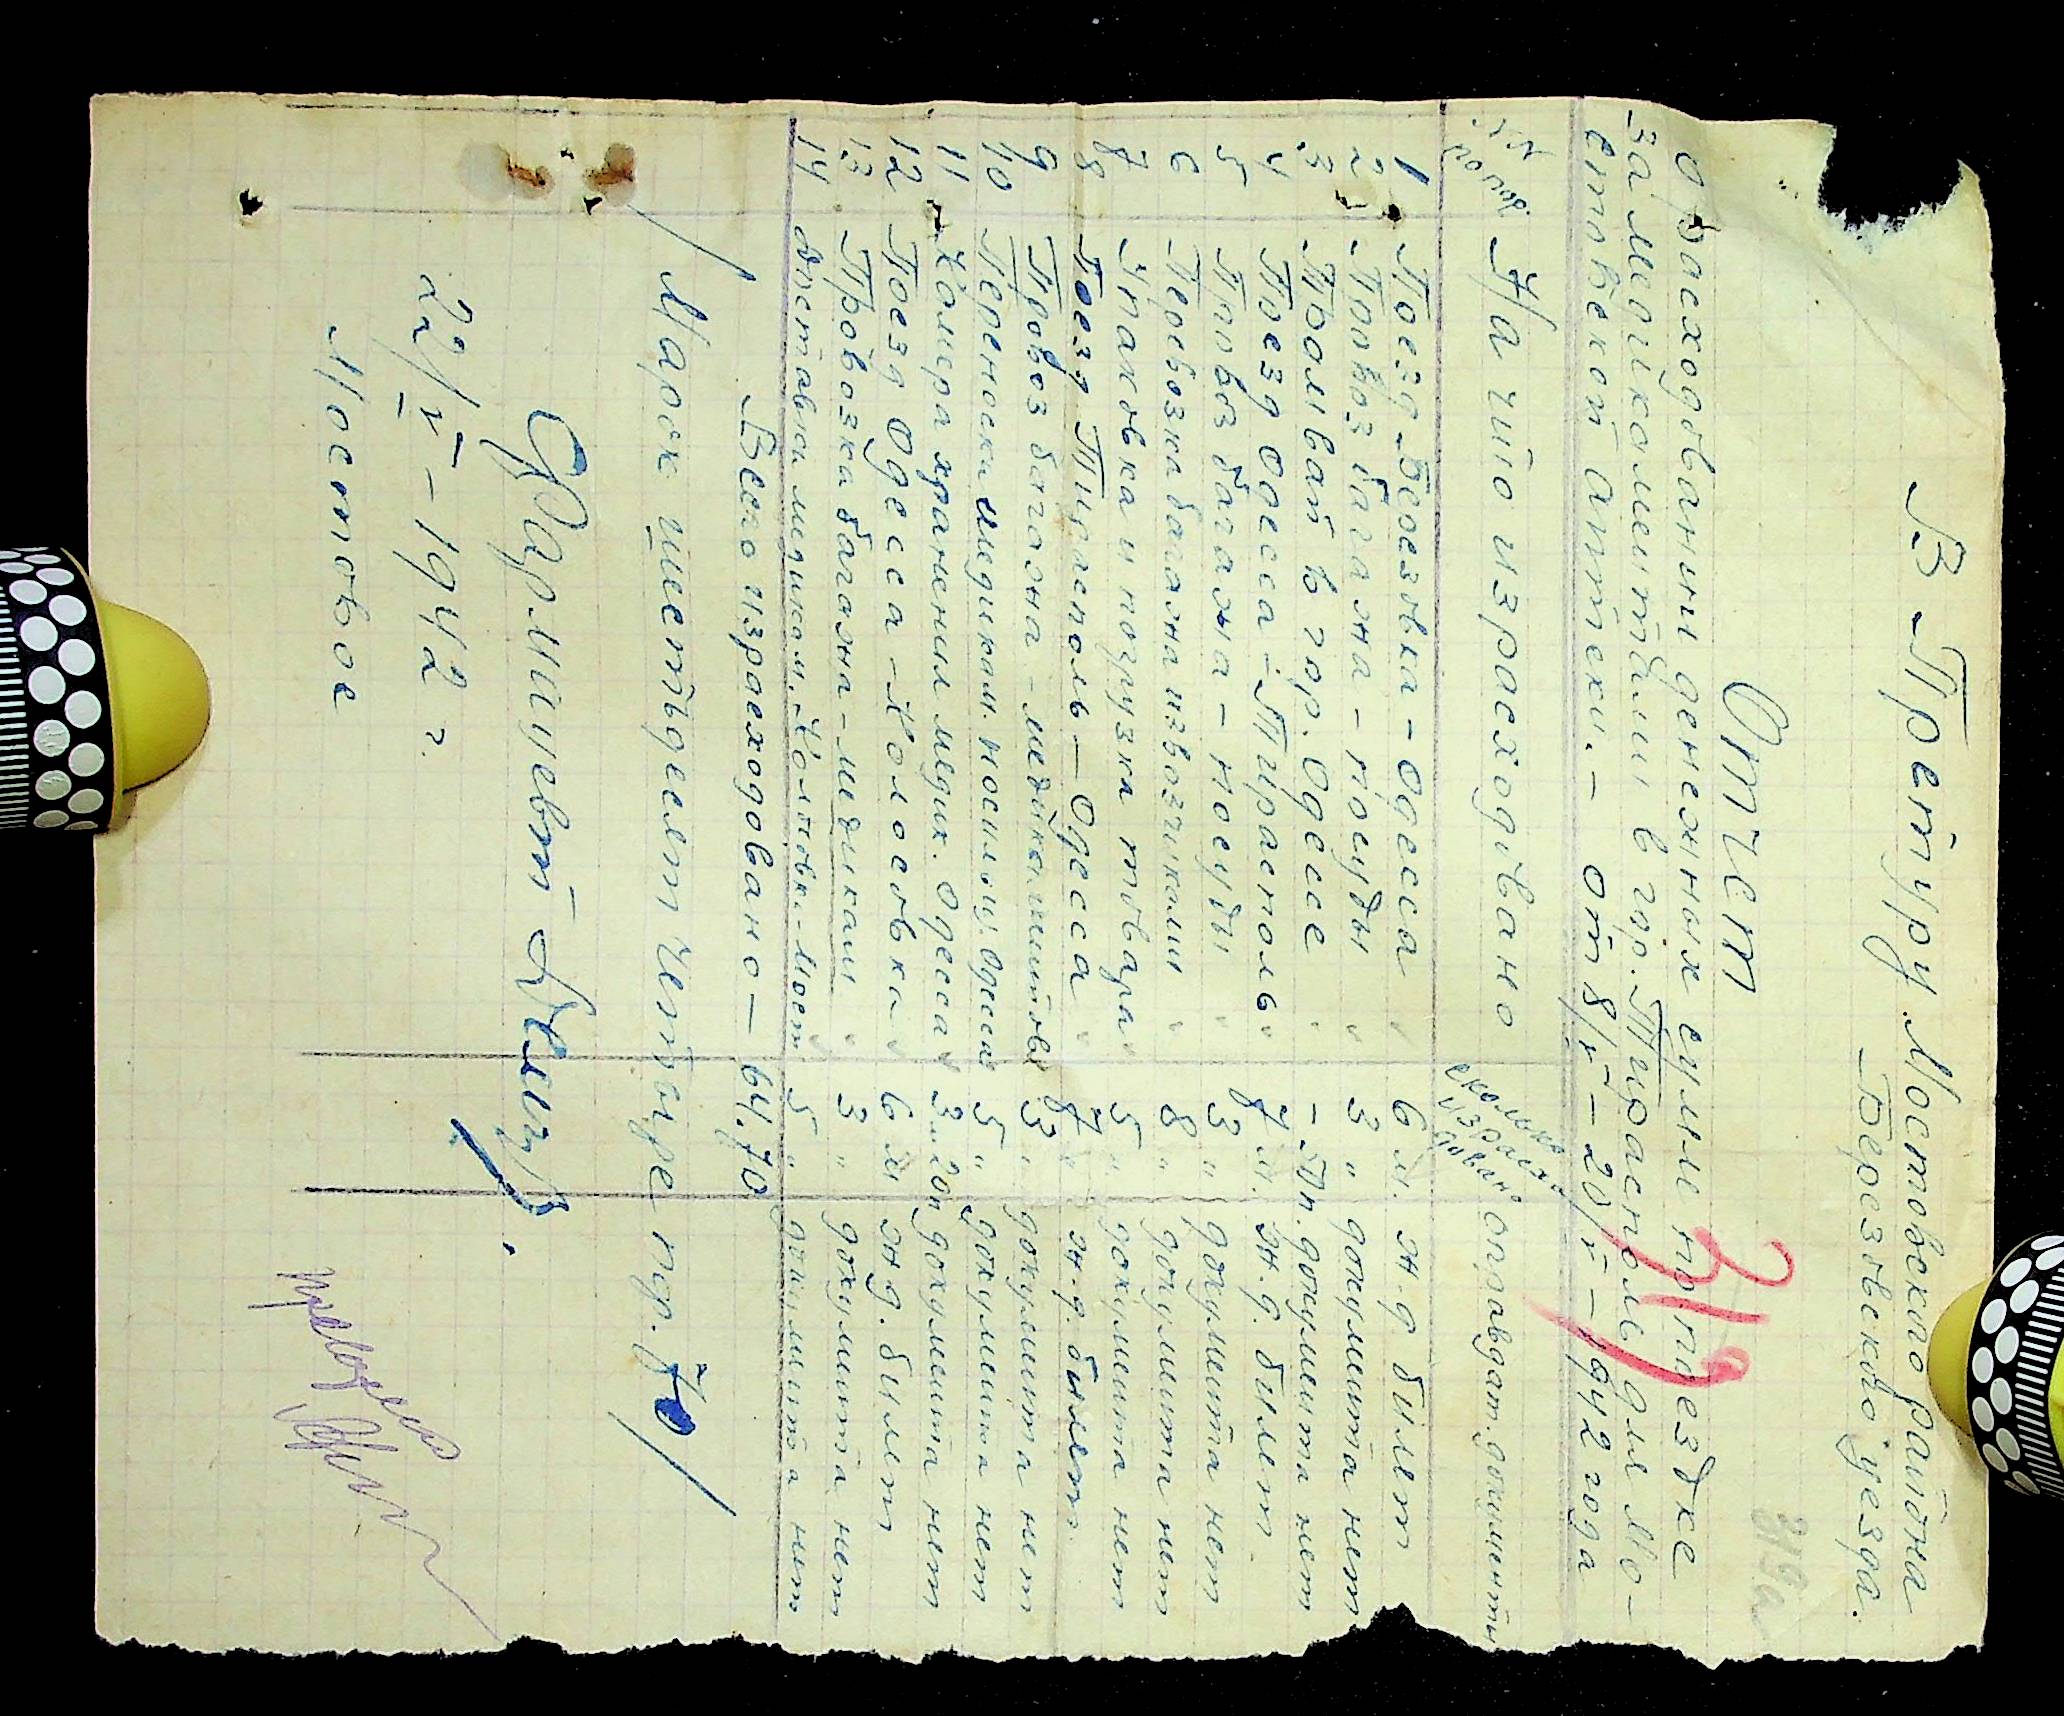 В Претуру Мостовского района
Березовского уезда.
Отчет
319
319а
О расходовании денежных сумм по поездке
за медикаментами в гор. Тирасполь для Мо-
стовской аптеки. – от 8/V – 20/V – 1942 года
№№ На что израсходовано сколько израсходовано оправдат. документы
1 Поезд Березовка – Одесса " 6 м. ж.д билет
2 Провоз багажа – посуды " 3 " документа нет
3 Трамвай в гор. Одессе " – 50 п. документа нет
4 Поезд Одесса – Тирасполь " 7 м. ж.д. билет.
5 Провоз багажа – посуды " 3 " документа нет
6 Перевозка багажа извозчиками " 8 " документа нет
7 Упаковка и погрузка товара " 5 " документа нет
8 Поезд Тирасполь – Одесса " 7 " ж.д. билет.
9 Провоз багажа – медикаментов 3 " документа нет
10 Переноска медикам. носильщ. Одесса 5 " документа нет
11 Камера хранения медик. Одесса " 3 м 20 п документа нет
12 Поезд Одесса – Колосовка " 6 м ж.д. билет
13 Провозка багажа – медикам " 3 " документа нет
14 Доставки медикам. Колосовк. – Мост " 5 " документа нет
Всего израсходовано – 64.70
/ Марок шестьдесят четыре пф. 70/
Фармацевт
22/V – 1942 г.
Мостовое